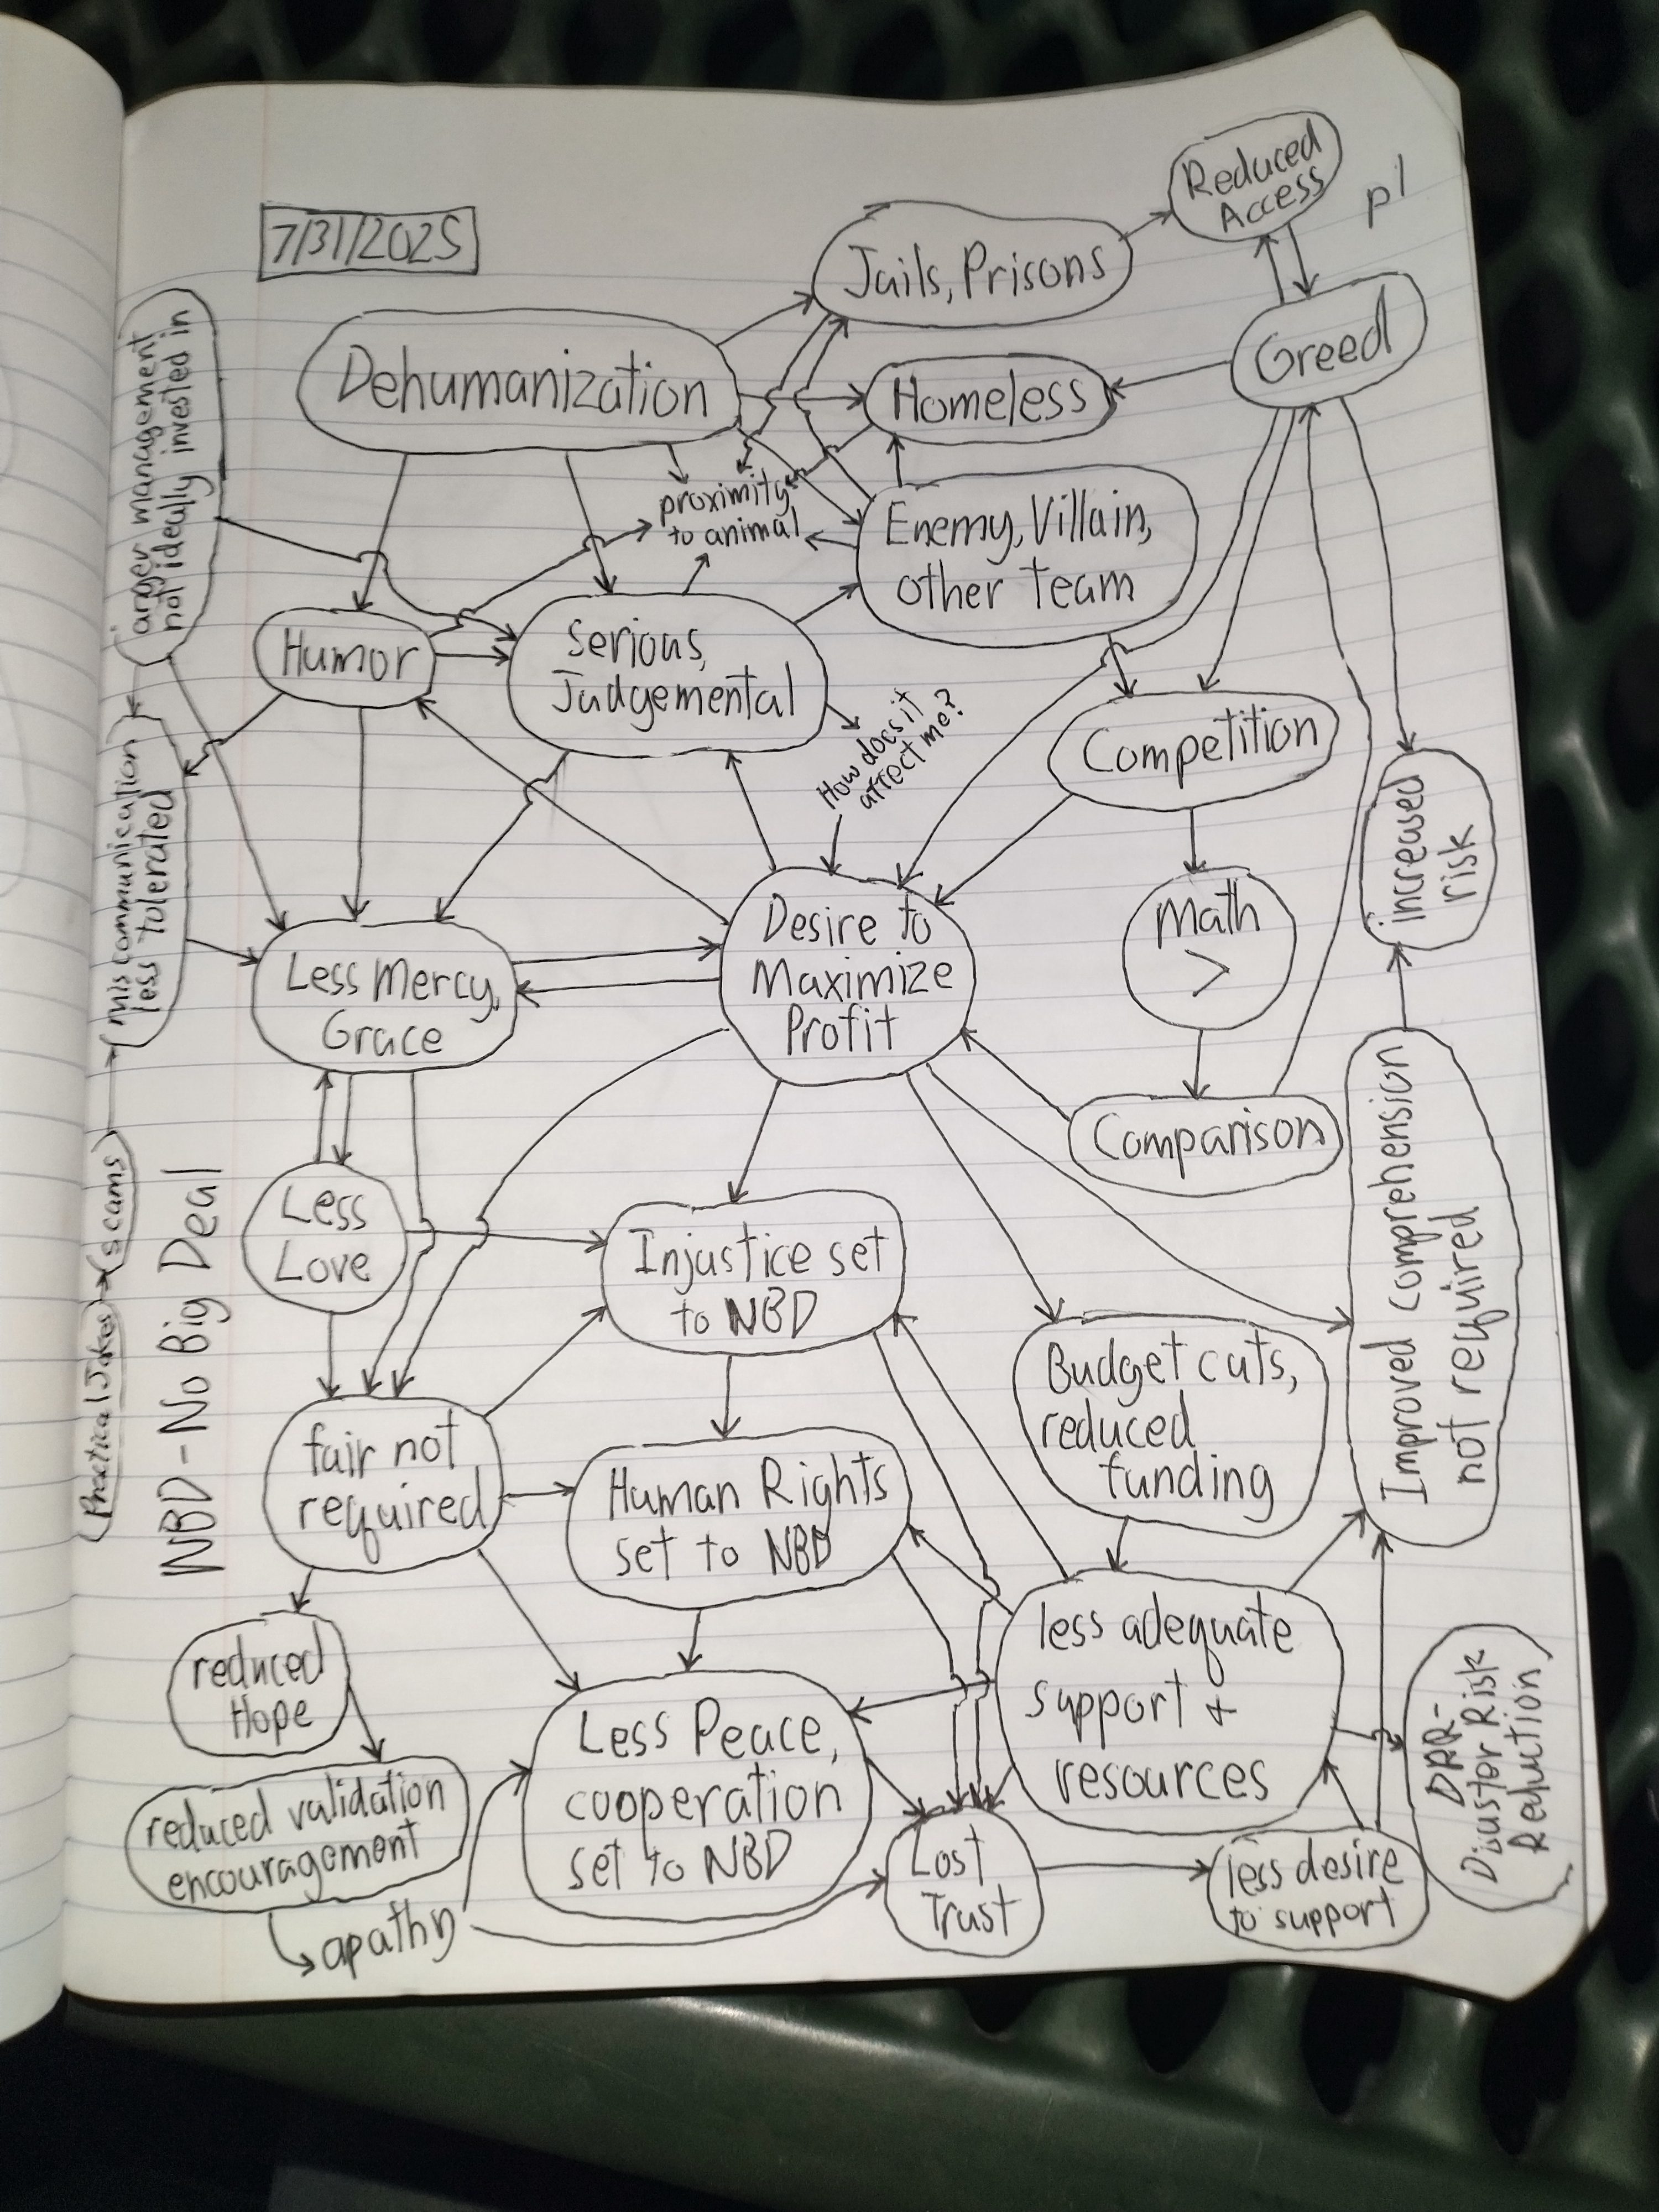 7/31/2025
p1
Reduced
Access
Jails, Prisons
Greed
Dehumanization
Homeless
anger management
not ideally invested in
proximity
to animal
Enemy, Villain,
other team
Humor
Serious,
Judgemental
How does it
affect me?
Competition
increased
risk
miscommunication
less tolerated
Less Mercy,
Grace
Desire to
Maximize
Profit
Math
>
Comparison
Improved comprehension
not required
scams
Practical Jokes
NBD - No Big Deal
Less
Love
Injustice set
to NBD
Budget cuts,
reduced
funding
fair not
required
Human Rights
set to NBD
less adequate
support +
resources
DRR-
Disaster Risk
Reduction
reduced
Hope
Less Peace,
cooperation
set to NBD
reduced validation
encouragement
apathy
Lost
Trust
less desire
to support